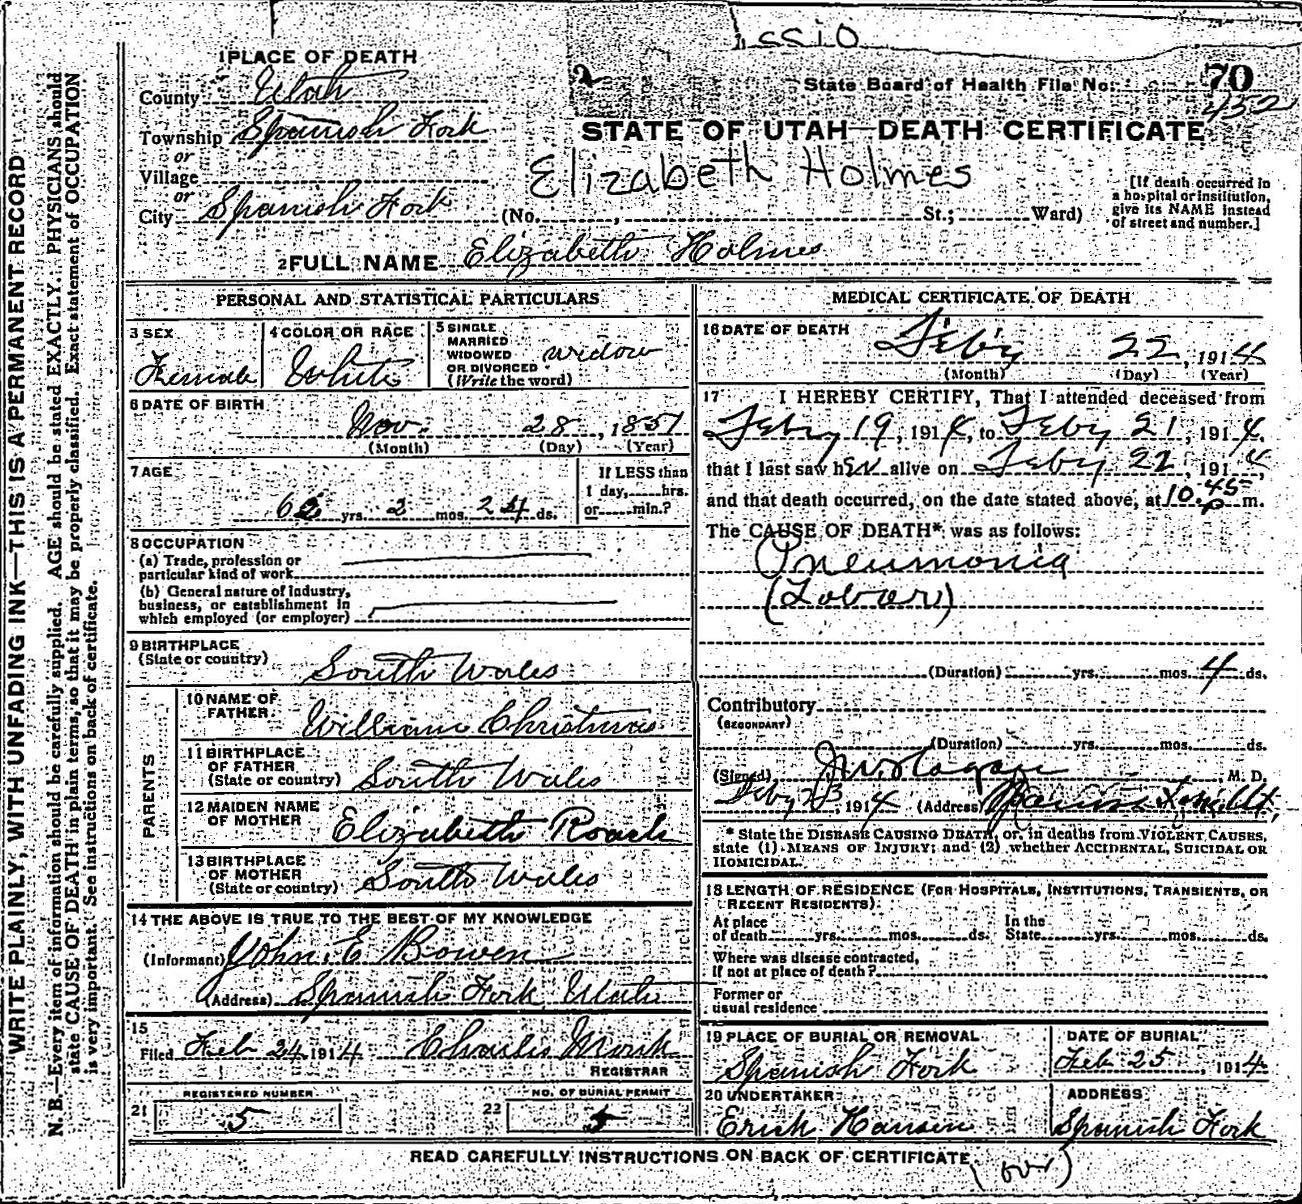 WRITE PLAINLY, WITH UNFADING INK—THIS IS A PERMANENT RECORD
N. B.—Every item of information should be carefully supplied. AGE should be stated EXACTLY. PHYSICIANS should
state CAUSE OF DEATH in plain terms, so that it may be properly classified. Exact statement of OCCUPATION
is very important. See instructions on back of certificate.
1 PLACE OF DEATH
County Utah
Township Spanish Fork
or
Village
or
City Spanish Fork
2
State Board of Health File No. 70
452
STATE OF UTAH—DEATH CERTIFICATE
Elizabeth Holmes
(No. , St.; Ward)
[If death occurred in
a hospital or institution,
give its NAME instead
of street and number.]
2 FULL NAME Elizabeth Holmes
PERSONAL AND STATISTICAL PARTICULARS
3 SEX
Female
4 COLOR OR RACE
White
5 SINGLE
MARRIED
WIDOWED
OR DIVORCED
(Write the word)
widow
6 DATE OF BIRTH
Nov. 28, 1851
(Month) (Day) (Year)
7 AGE
62 yrs. 2 mos. 24 ds.
If LESS than
1 day, hrs.
or min.?
8 OCCUPATION
(a) Trade, profession or
particular kind of work
(b) General nature of industry,
business, or establishment in
which employed (or employer)
9 BIRTHPLACE
(State or country)
South Wales
PARENTS
10 NAME OF
FATHER
William Christmas
11 BIRTHPLACE
OF FATHER
(State or country)
South Wales
12 MAIDEN NAME
OF MOTHER
Elizabeth Roach
13 BIRTHPLACE
OF MOTHER
(State or country)
South Wales
14 THE ABOVE IS TRUE TO THE BEST OF MY KNOWLEDGE
(Informant) John E Bowen
(Address) Spanish Fork Utah
15
Filed Feb 24 1914 Charles Monk
REGISTRAR
REGISTERED NUMBER
21 5
NO. OF BURIAL PERMIT
22 5
MEDICAL CERTIFICATE OF DEATH
16 DATE OF DEATH
Feby 22, 1914
(Month) (Day) (Year)
17 I HEREBY CERTIFY, That I attended deceased from
Feby 19, 1914, to Feby 21, 1914,
that I last saw her alive on Feby 22, 1914,
and that death occurred, on the date stated above, at 10.45 p m.
The CAUSE OF DEATH* was as follows:
Pneumonia
(Lobar)
(Duration) yrs. mos. 4 ds.
Contributory
(SECONDARY)
(Duration) yrs. mos. ds.
(Signed) , M. D.
Feby 23 1914 (Address) Spanish Fork Ut,
* State the DISEASE CAUSING DEATH, or, in deaths from VIOLENT CAUSES,
state (1) MEANS OF INJURY; and (2) whether ACCIDENTAL, SUICIDAL OR
HOMICIDAL.
18 LENGTH OF RESIDENCE (FOR HOSPITALS, INSTITUTIONS, TRANSIENTS, OR
RECENT RESIDENTS)
At place
of death yrs. mos. ds.
In the
State yrs. mos. ds.
Where was disease contracted,
if not at place of death?
Former or
usual residence
19 PLACE OF BURIAL OR REMOVAL
Spanish Fork
DATE OF BURIAL
Feb 25, 1914
20 UNDERTAKER
Erick Hansen
ADDRESS
Spanish Fork
READ CAREFULLY INSTRUCTIONS ON BACK OF CERTIFICATE
(over)